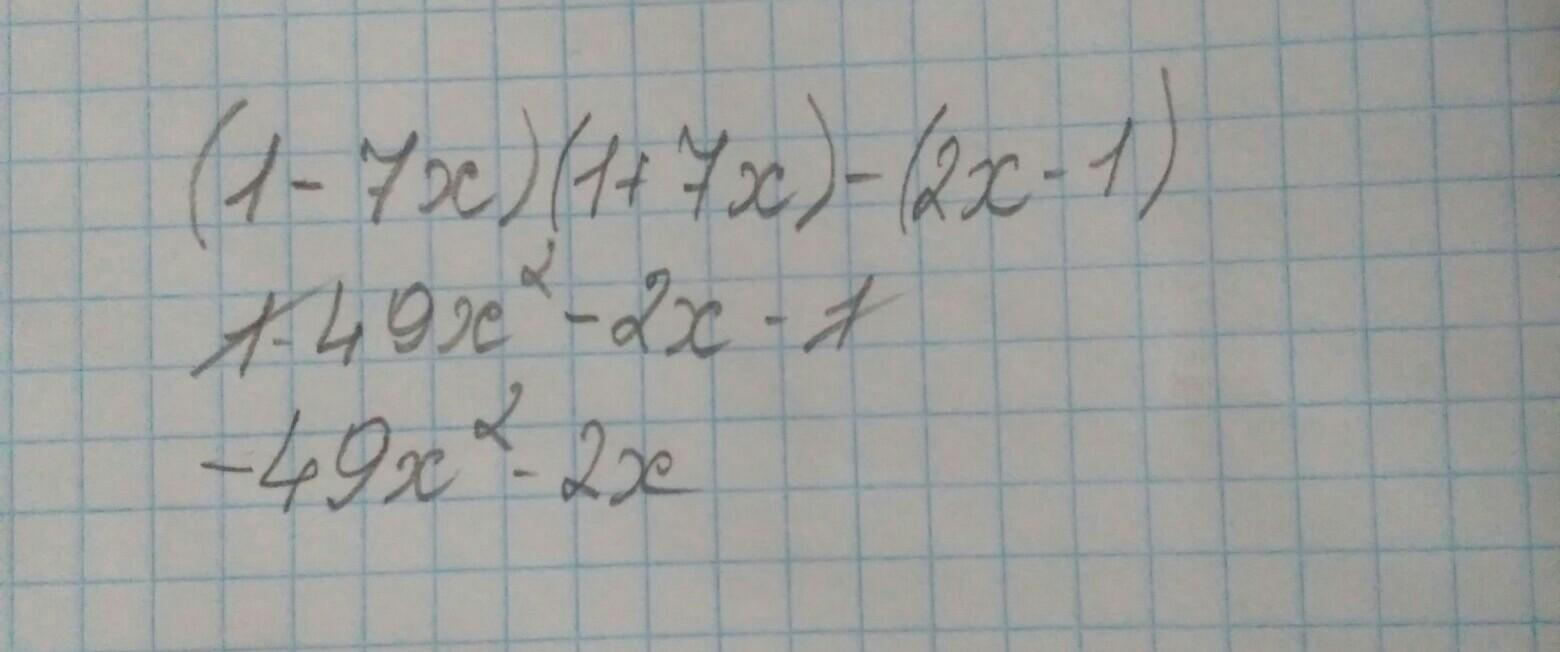 (1-7x)(1+7x)-(2x-1)
1-49x²-2x-1
-49x²-2x